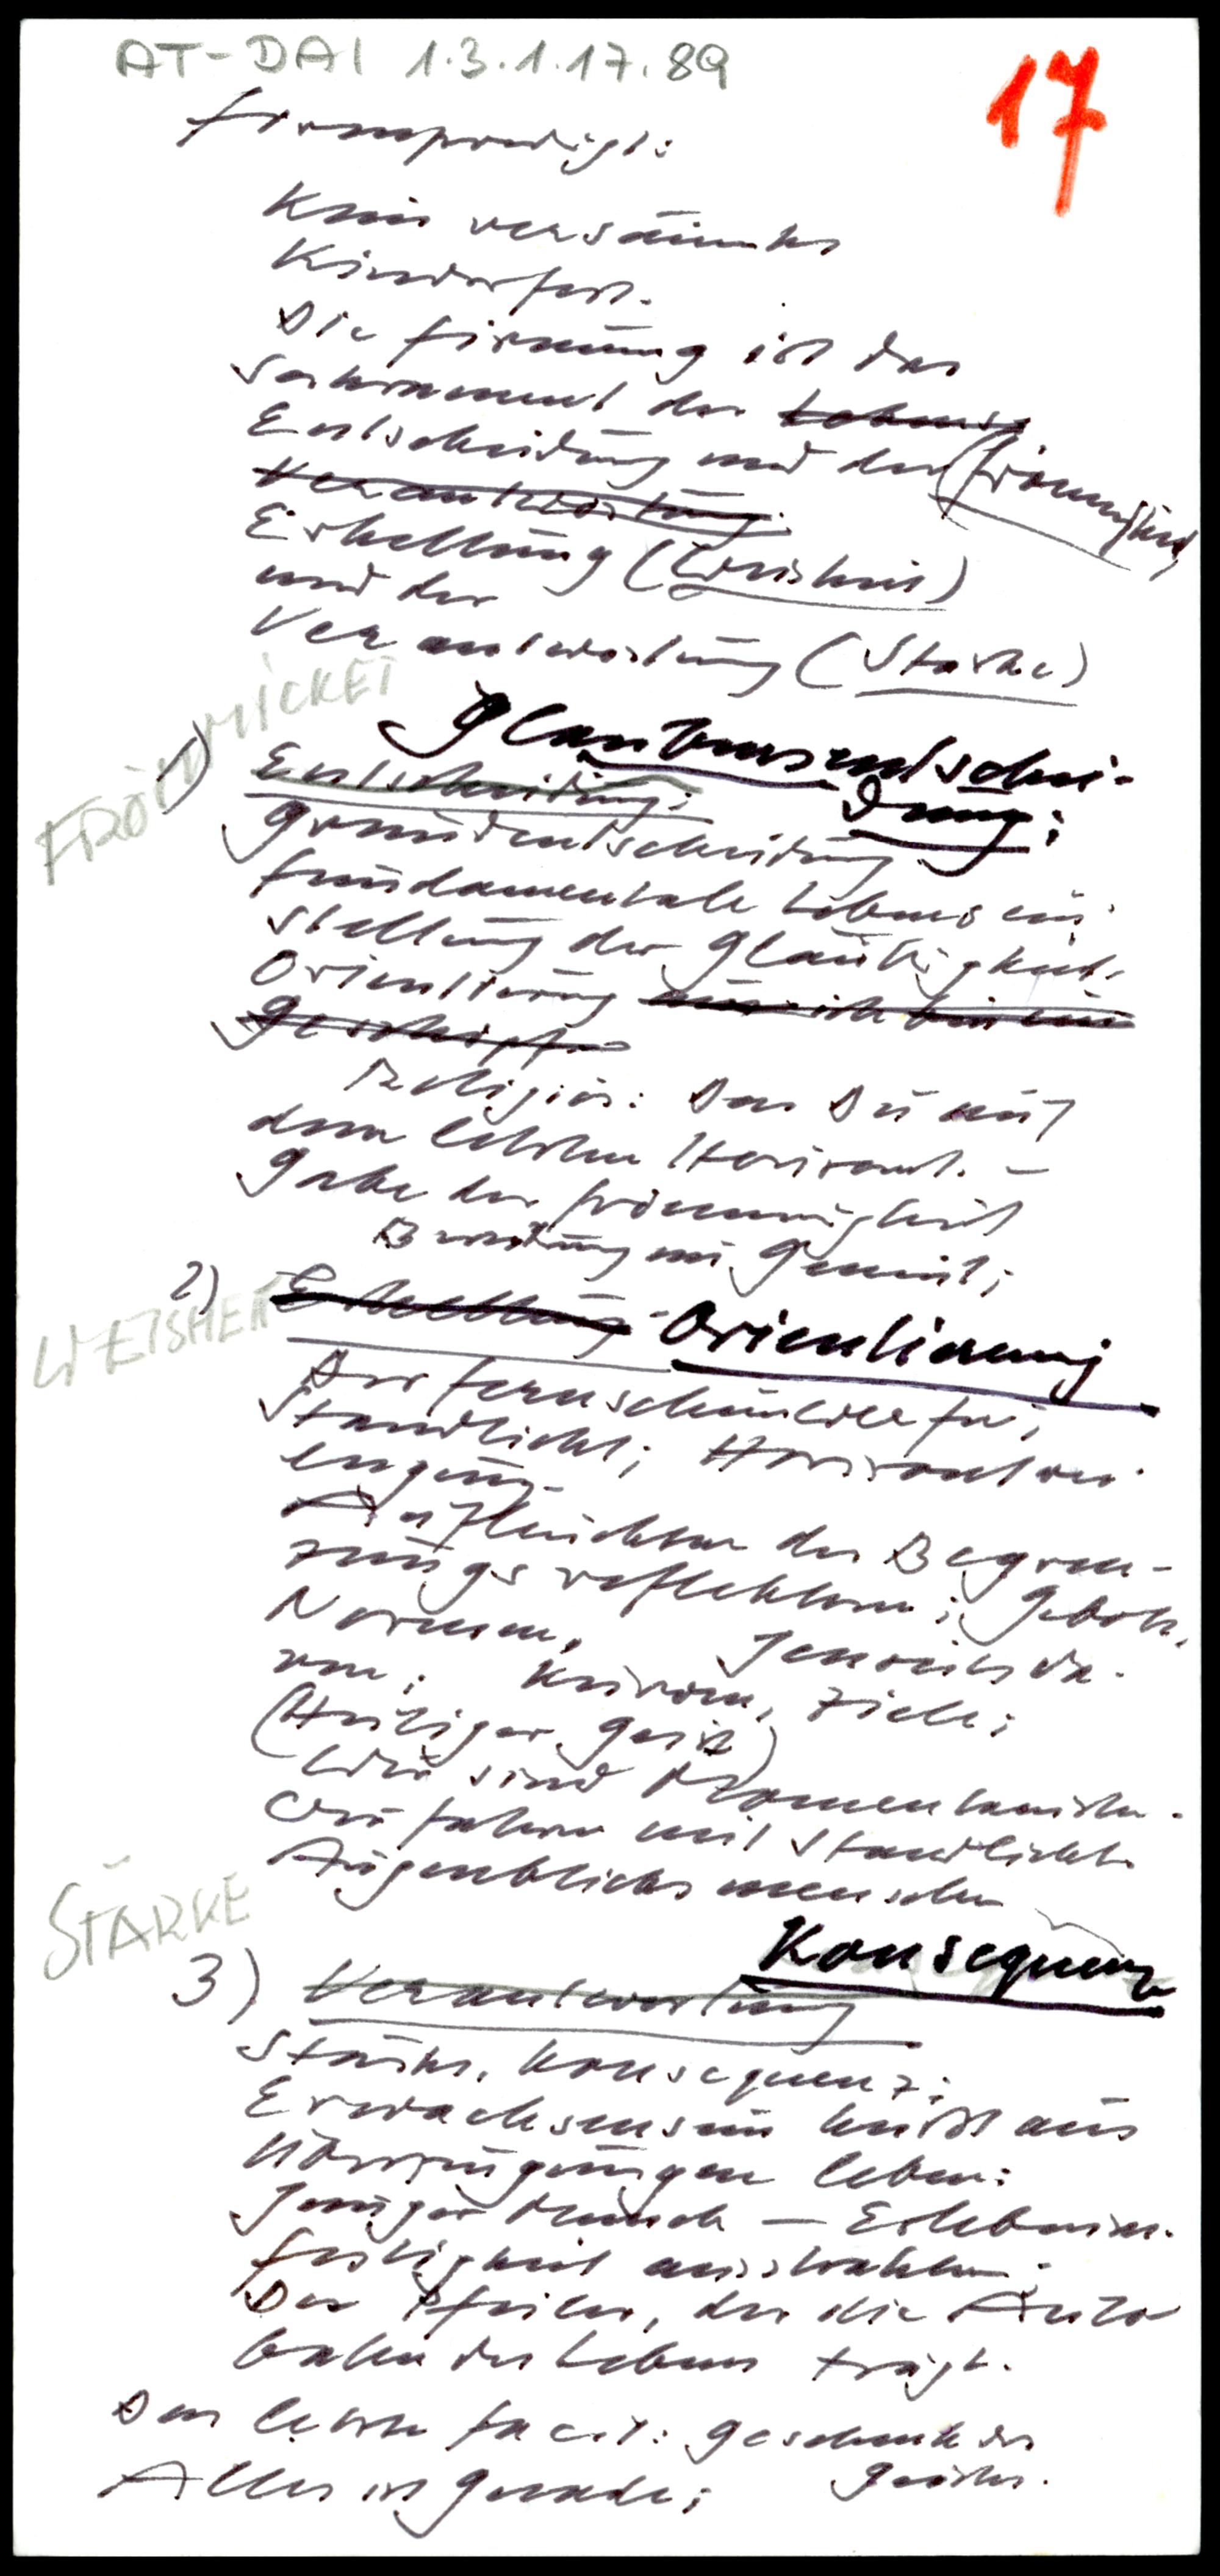 AT-DAI 1.3.1.17.89
17
Firmpredigt:
Kein versäumtes
Kinderfest.
Die Firmung ist das
Sakrament der Lebens
Entscheidung und der (Frömmigkeit)
Verantwortung
Erhellung (Weisheit)
und der
Verantwortung (Stärke)
FRÖMMIGKEIT
1) Glaubensentschei-
Entscheidung: dung:
Grundentscheidung
fundamentale Lebensein-
stellung der Gläubigkeit
Orientierung
Geschöpf
Religiös: Das Du auf
dem letzten Horizont. -
Gabe der Frömmigkeit
im Gemüt;
WEISHEIT
2) Erhellung Orientierung
Der Fernscheinwerfer;
Standlicht; Horizontver-
engung
Aufleuchten der Begren-
zungsreflektoren; Gebote,
Normen, Jenseits da-
von: Horizonte, Ziele;
(Heiliger Geist)
Wir sind Momentanisten.
Wir fahren mit Standlicht.
Augenblicksmenschen
STÄRKE
Konsequenz
3) Verantwortung
Stärke, Konsequenz;
Erwachsensein heißt aus
Überzeugungen leben:
Junger Mensch — Erlebnisse.
Festigkeit ausstrahlen;
Der Pfeiler, der die Auto
bahn des Lebens trägt.
Das letzte Facit: Geschenk des
Alles ist Gnade; Geistes.